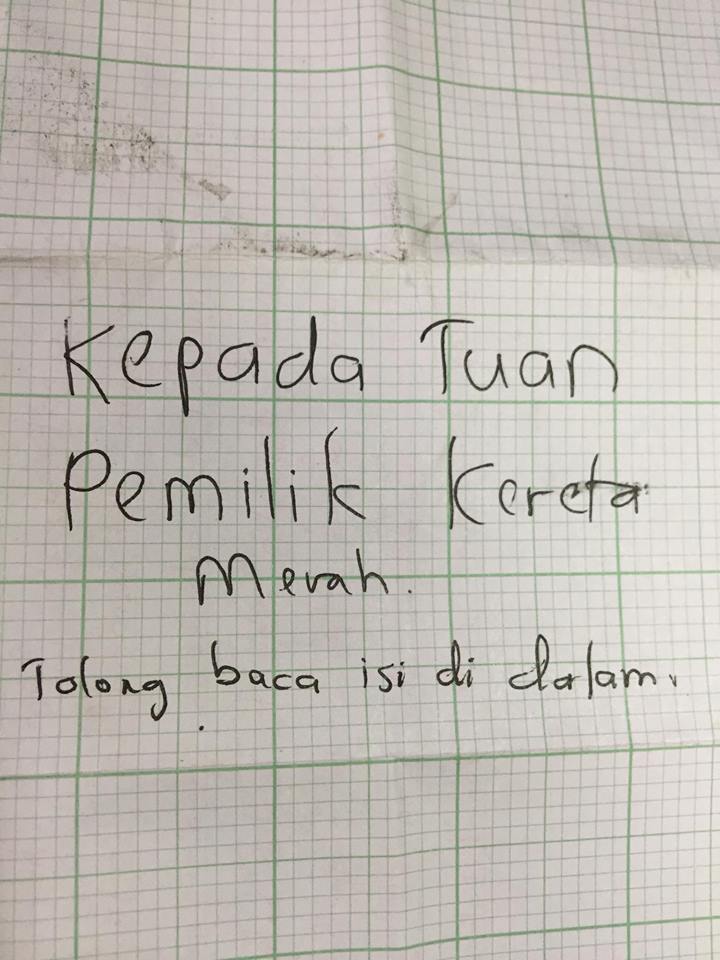 Kepada Tuan
Pemilik Kereta
Merah.
Tolong baca isi di dalam.